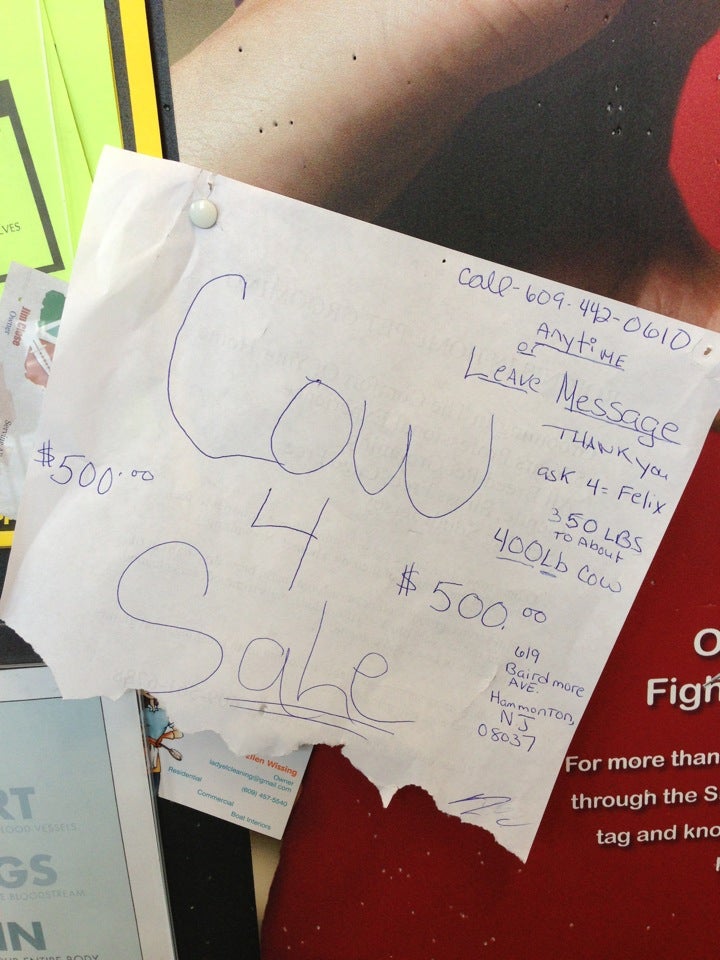 LVES
Jim Close
Owner
call-609-442-0610
Anytime
or
Leave Message
THANK you
ask 4= Felix
350 LBS
TO About
400Lb Cow
Cow
4
Sale
$500.00
$500.00
619
Bairdmore
AVE.
Hammonton,
NJ
08037
ellen Wissing
Owner
ladyelcleaning@gmail.com
(609) 457-5640
Residential
Commercial
Boat Interiors
RT
LOOD VESSELS
GS
E BLOODSTREAM
IN
UR ENTIRE BODY
O
Figh
For more than
through the S
tag and kno